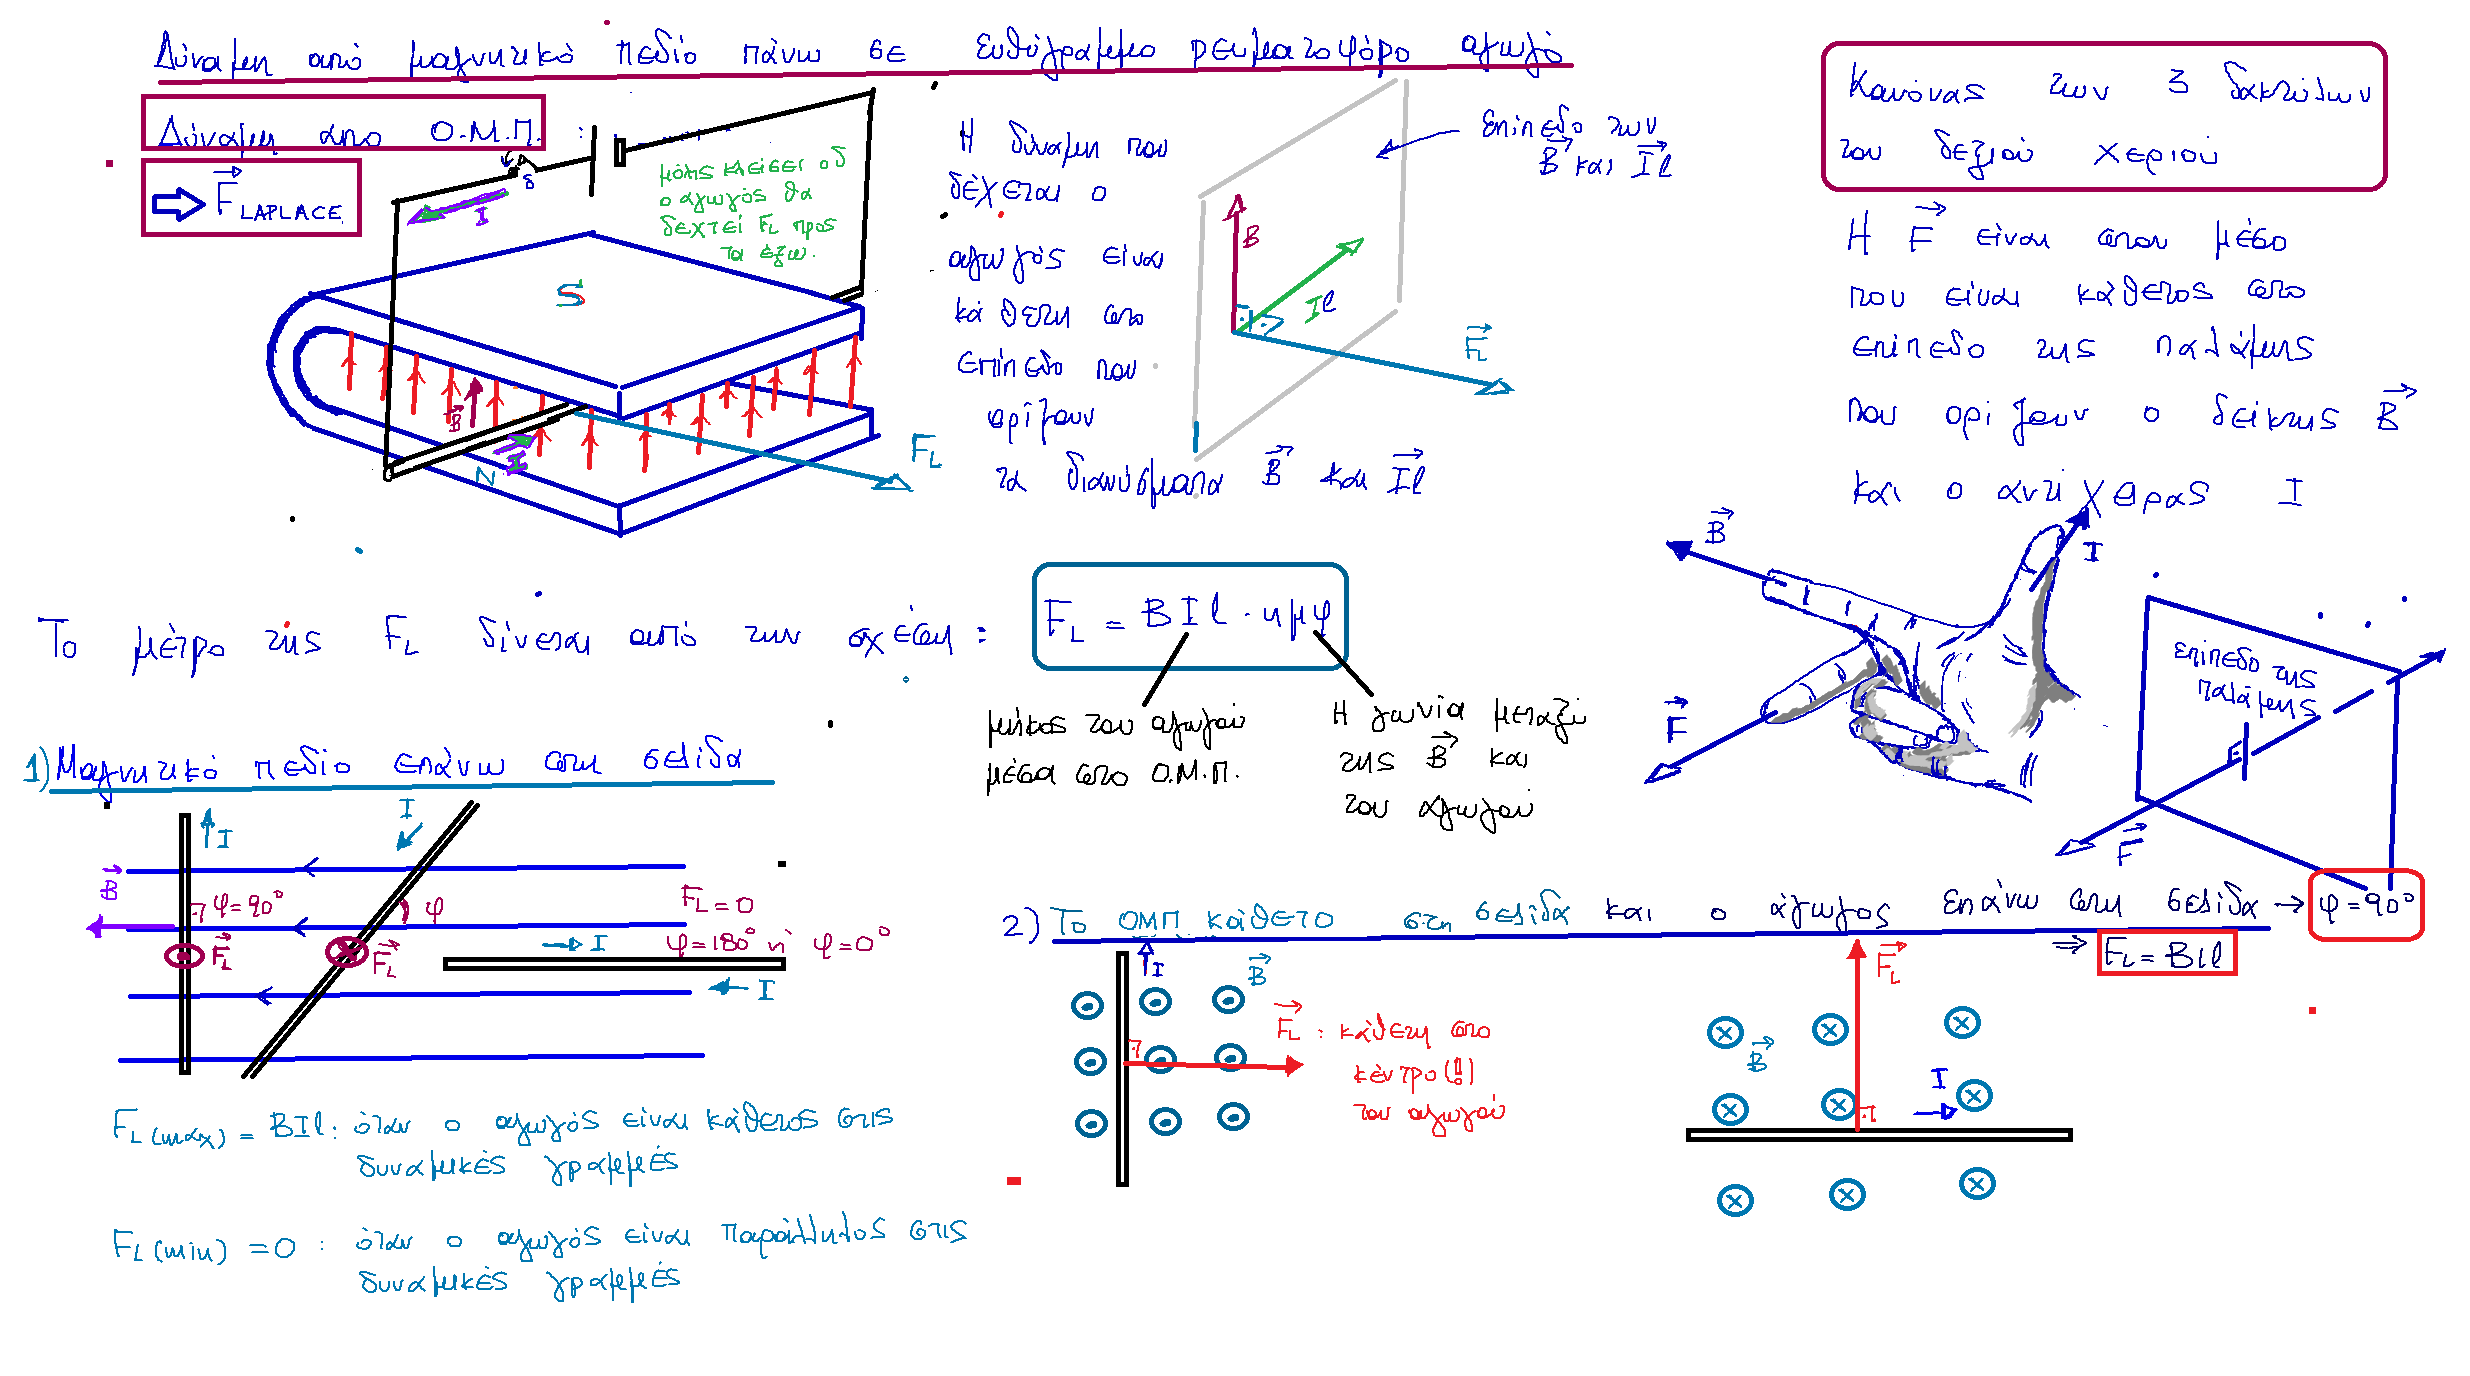 Δύναμη από μαγνητικό πεδίο πάνω σε ευθύγραμμο ρευματοφόρο αγωγό
Δύναμη από Ο.Μ.Π. :
⇒ F LAPLACE
δ
I
μόλις κλείσει ο δ
ο αγωγός θα
δεχτεί FL προς
τα έξω.
S
B
I
N
FL
Η δύναμη που
δέχεται ο
αγωγός είναι
κάθετη στο
επίπεδο που
ορίζουν
τα διανύσματα B και Il
B
Il
FL
Επίπεδο των
B και Il
Κανόνας των 3 δακτύλων
του δεξιού χεριού
Η F είναι στον μέσο
που είναι κάθετος στο
επίπεδο της παλάμης
που ορίζουν ο δείκτης B
και ο αντίχειρας I
B
I
F
επίπεδο της
παλάμης
F
Το μέτρο της FL δίνεται από την σχέση :
FL = B I l · ημφ
μήκος του αγωγού
μέσα στο Ο.Μ.Π.
Η γωνία μεταξύ
της B και
του αγωγού
1) Μαγνητικό πεδίο επάνω στη σελίδα
I
I
B
φ=90°
φ
FL=0
φ=180° ή φ=0°
FL
FL
I
I
FL(max) = BIl : όταν ο αγωγός είναι κάθετος στις
δυναμικές γραμμές
FL(min) = 0 : όταν ο αγωγός είναι παράλληλος στις
δυναμικές γραμμές
2) Το ΟΜΠ κάθετο στη σελίδα και ο άγωγος επάνω στη σελίδα → φ=90°
⇒ FL = BIl
I
B
FL : κάθετη στο
κέντρο(!)
του αγωγού
FL
B
I